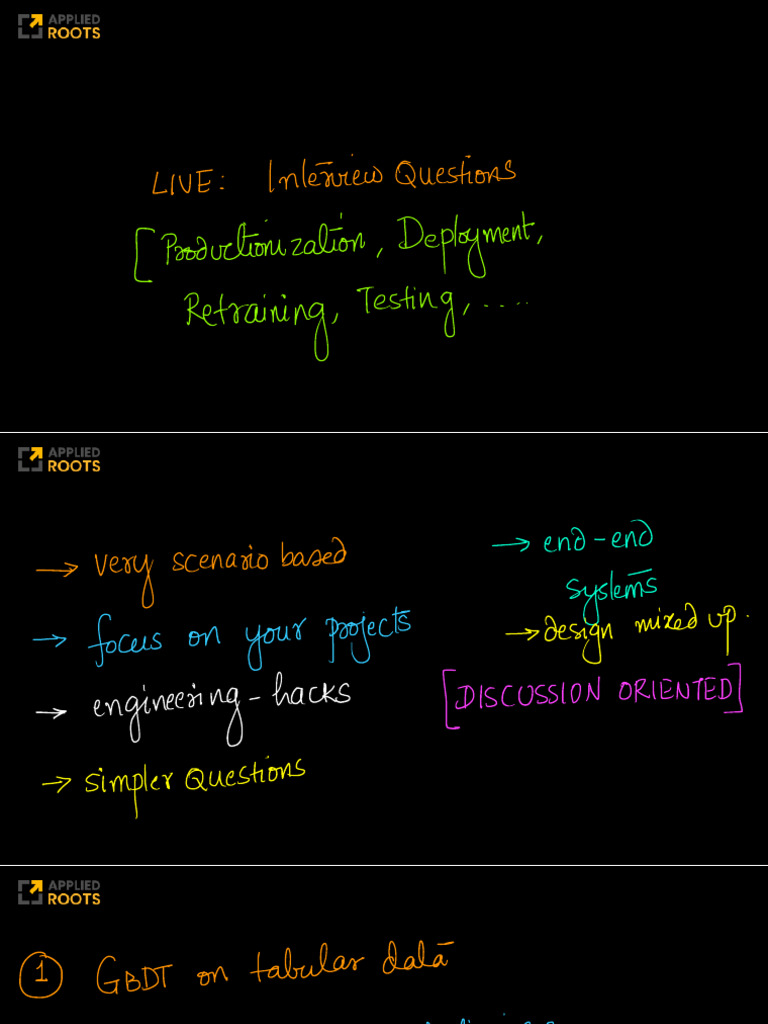 APPLIED
ROOTS
LIVE: Interview Questions
[Productionization, Deployment,
Retraining, Testing, ....
APPLIED
ROOTS
→ very scenario based
→ focus on your projects
→ engineering-hacks
→ simpler Questions
→ end-end
systems
→ design mixed up.
[DISCUSSION ORIENTED]
APPLIED
ROOTS
1 GBDT on tabular data